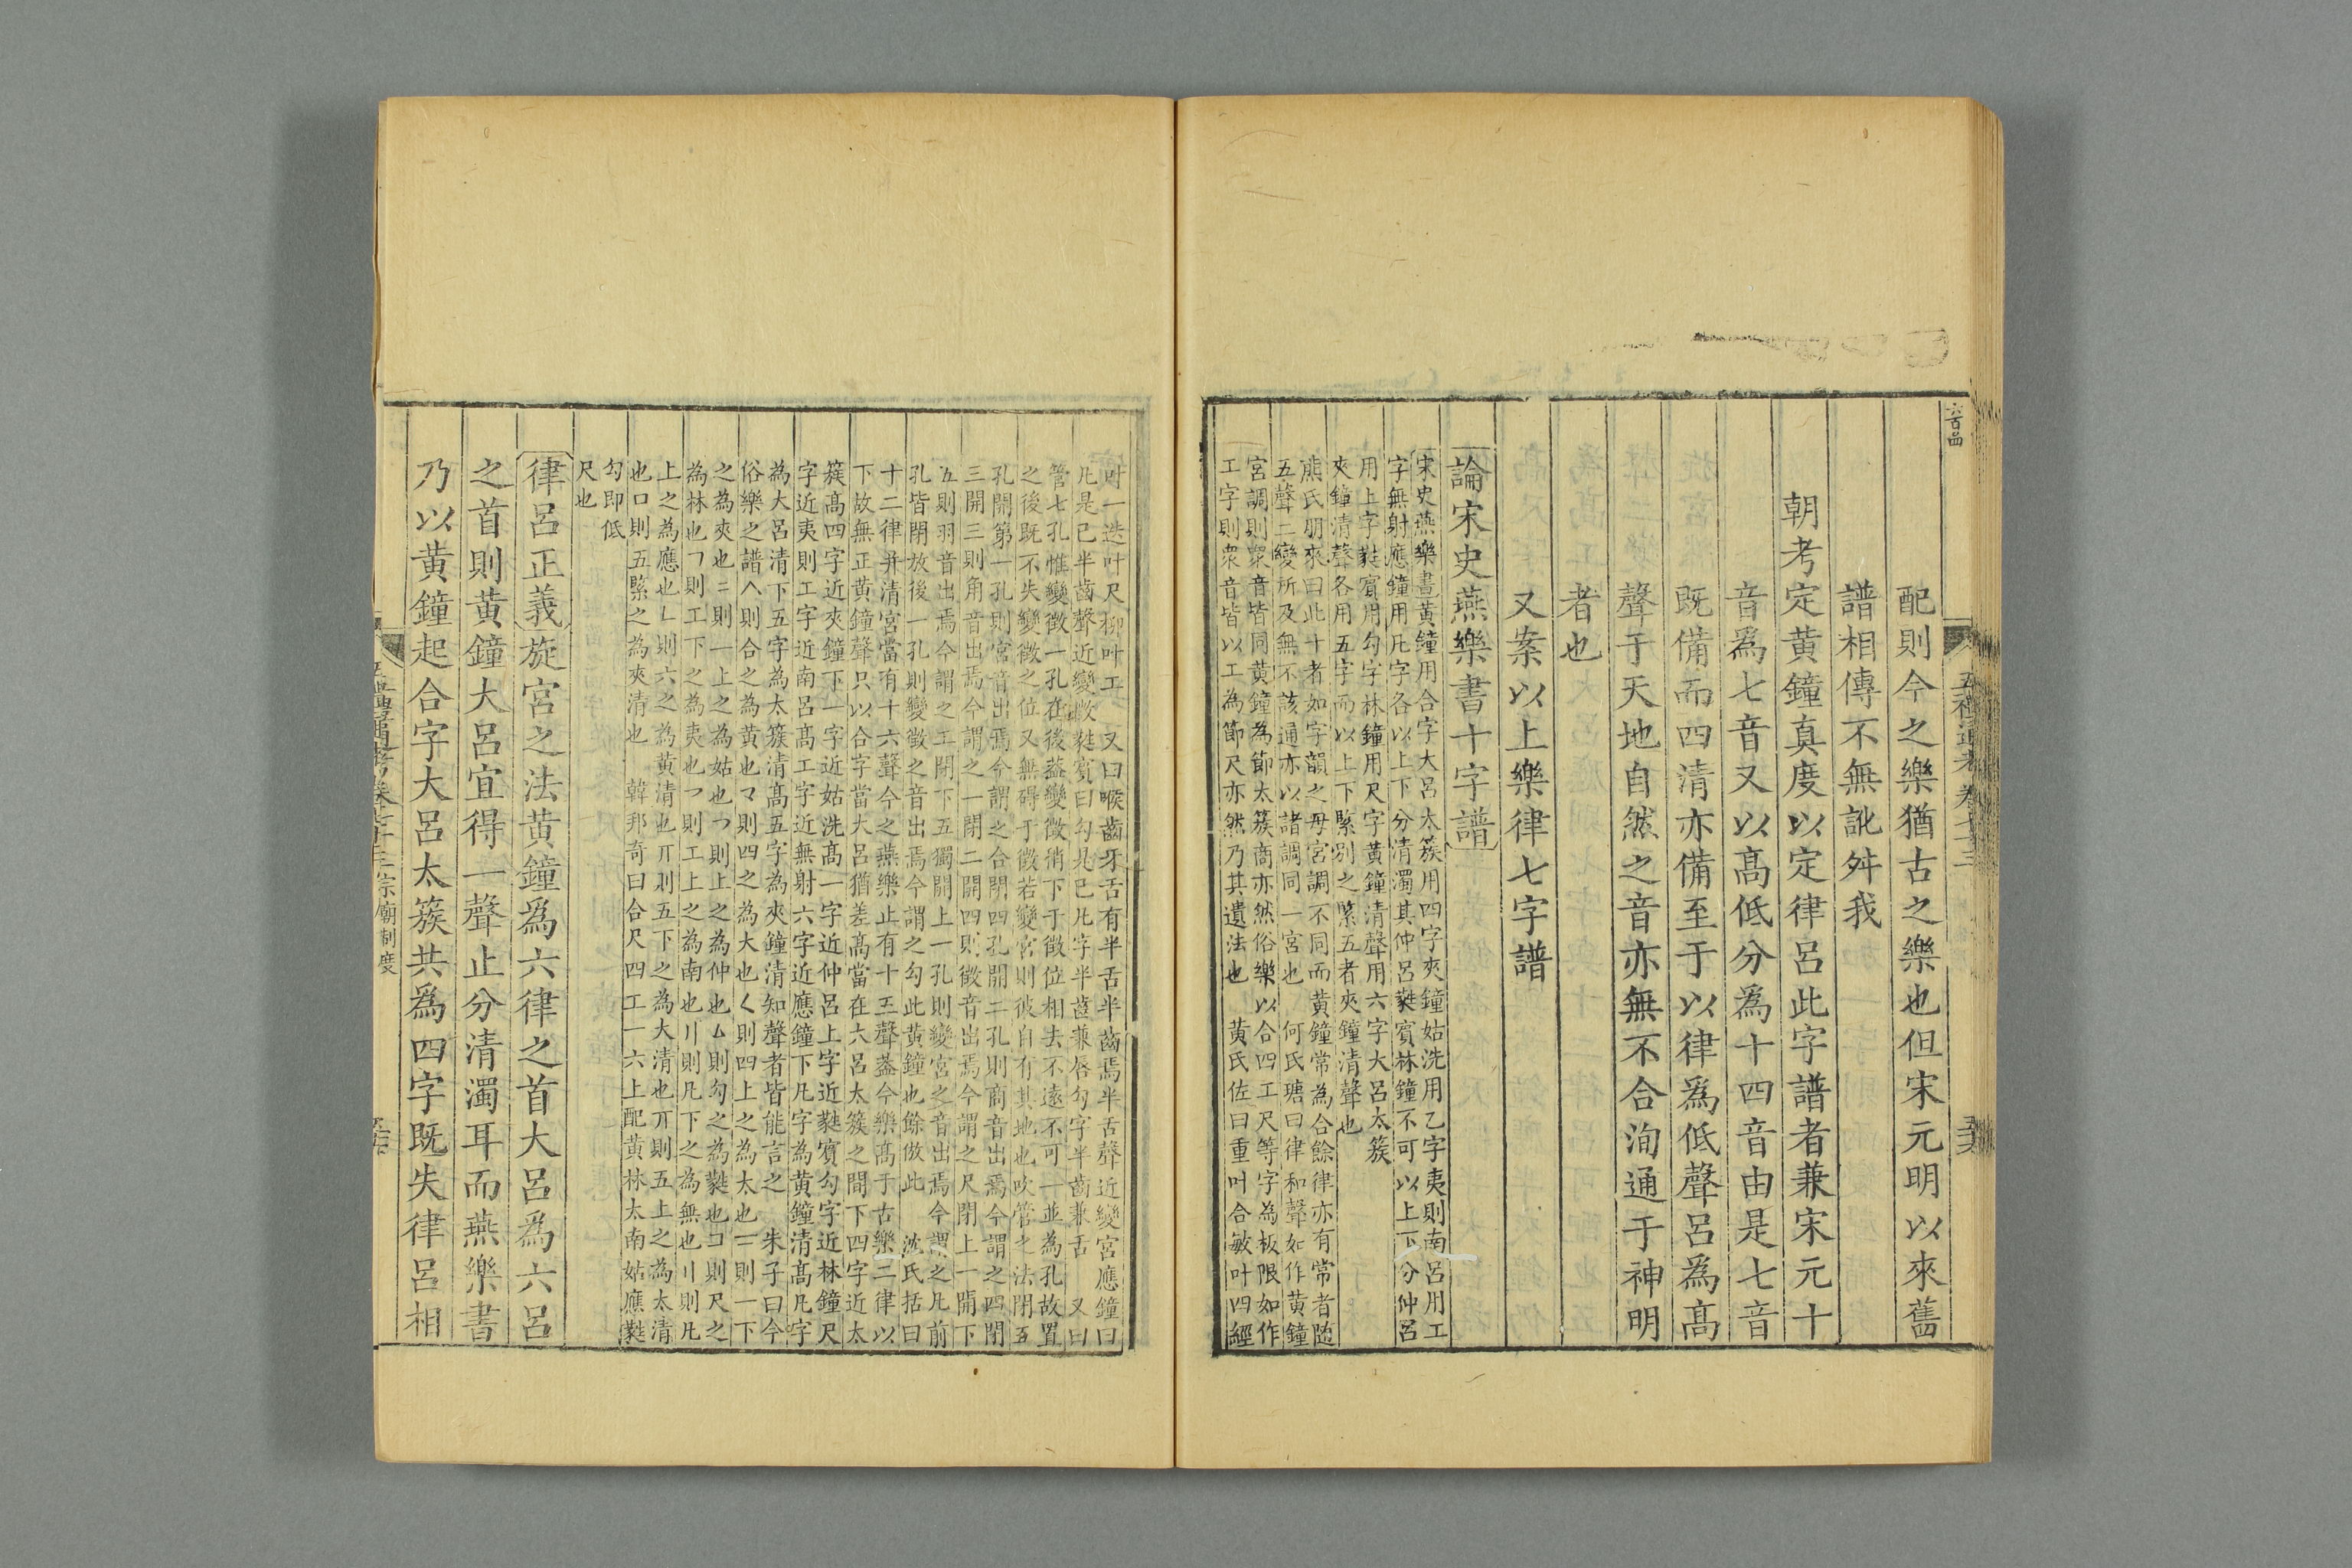 配則今之樂猶古之樂也但宋元明以來舊
譜相傳不無訛舛我
朝考定黃鐘真度以定律呂此字譜者兼宋元十
音爲七音又以髙低分爲十四音由是七音
既備而四清亦備至于以律爲低聲呂爲髙
聲于天地自然之音亦無不合洵通于神明
者也
又案以上樂律七字譜
論宋史燕樂書十字譜
宋史燕樂書黃鐘用合字大呂太簇用四字夾鐘姑洗用乙字夷則南呂用工
字無射應鐘用凡字各以上下分清濁其仲呂蕤賓林鐘不可以上下分仲呂
用上字蕤賓用勾字林鐘用尺字黃鐘清聲用六字大呂太簇
夾鐘清聲各用五字而以上下緊別之緊五者夾鐘清聲也
熊氏朋來曰此十者如字韻之母宮調不同而黃鐘常為合餘律亦有常者隨
五聲二變所及無不該通亦以諸調同一宮也　何氏瑭曰律和聲如作黃鐘
宮調則衆音皆同黃鐘為節太簇商亦然俗樂以合四工尺等字為板限如作
工字則衆音皆以工為節尺亦然乃其遺法也　黃氏佐曰重叶合敏叶四經
叶一迭叶尺柳叶工　又曰喉齒牙舌有半舌半齒焉半舌聲近變宮應鐘曰
凡是已半齒聲近變徵蕤賓曰勾是已凡字半齒兼唇勾字半齒兼舌　又曰
管七孔惟變徵一孔在後葢變徵稍下于徵位相去不遠不可一並為孔故置
之後既不失變徵之位又無碍于徵若變宮則彼自有其地也吹管之法閉五
孔開第一孔則宮音出焉今謂之合閉四孔開二孔則商音出焉今謂之四閉
三開三則角音出焉今謂之一閉二開四則徵音出焉今謂之尺閉上一開下
五則羽音出焉今謂之工閉下五獨開上一孔則變宮之音出焉今謂之凡前
孔皆閉放後一孔則變徵之音出焉今謂之勾此黃鐘也餘倣此　沈氏括曰
十二律并清宮當有十六聲今之燕樂止有十五聲葢今樂髙于古樂二律以
下故無正黃鐘聲只以合字當大呂猶差髙當在大呂太簇之間下四字近太
簇髙四字近夾鐘下一字近姑洗髙一字近仲呂上字近蕤賓勾字近林鐘尺
字近夷則工字近南呂髙工字近無射六字近應鐘下凡字為黃鐘清髙凡字
為大呂清下五字為太簇清髙五字為夾鐘清知聲者皆能言之　朱子曰今
俗樂之譜𠆢則合之為黃也マ則四之為大也く則四上之為太也二則一下
之為夾也ニ則一上之為姑也つ則上之為仲也ム則勾之為蕤也コ則尺之
為林也フ則工下之為夷也フ則工上之為南也リ則凡下之為無也リ則凡
上之為應也ㄴ則六之為黃清也丌則五下之為大清也丌則五上之為太清
也口則五緊之為夾清也　韓邦奇曰合尺四工一六上配黃林太南姑應蕤
勾即低
尺也
律呂正義旋宮之法黃鐘爲六律之首大呂爲六呂
之首則黃鐘大呂宜得一聲止分清濁耳而燕樂書
乃以黃鐘起合字大呂太簇共爲四字既失律呂相